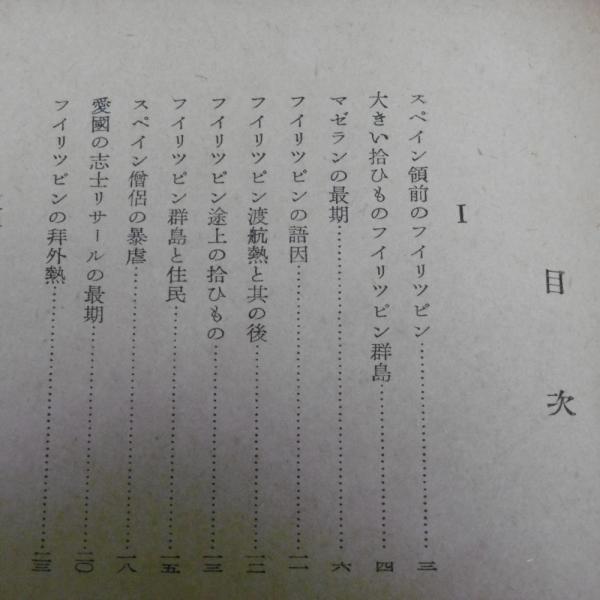 目次
I
スペイン領前のフイリツピン……三
大きい拾ひものフイリツピン群島……四
マゼランの最期……六
フイリツピンの語因……一一
フイリツピン渡航熱と其の後……一二
フイリツピン途上の拾ひもの……一三
フイリツピン群島と住民……一五
スペイン僧侶の暴虐……一八
愛國の志士リサールの最期……二〇
フイリツピンの拜外熱……二三